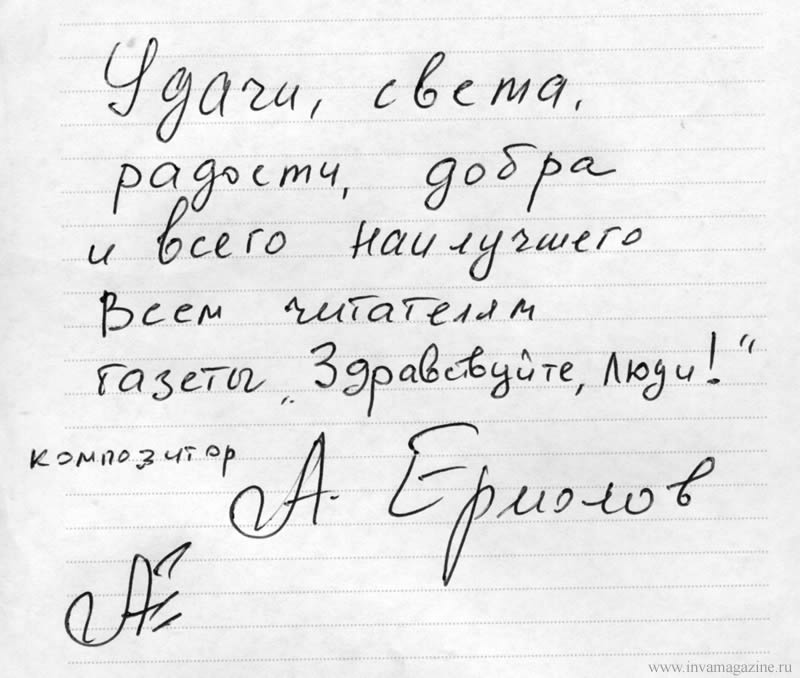 Удачи, света,
радости, добра
и всего наилучшего
Всем читателям
газеты „Здравствуйте, люди!“
композитор
А. Ермолов
www.invamagazine.ru